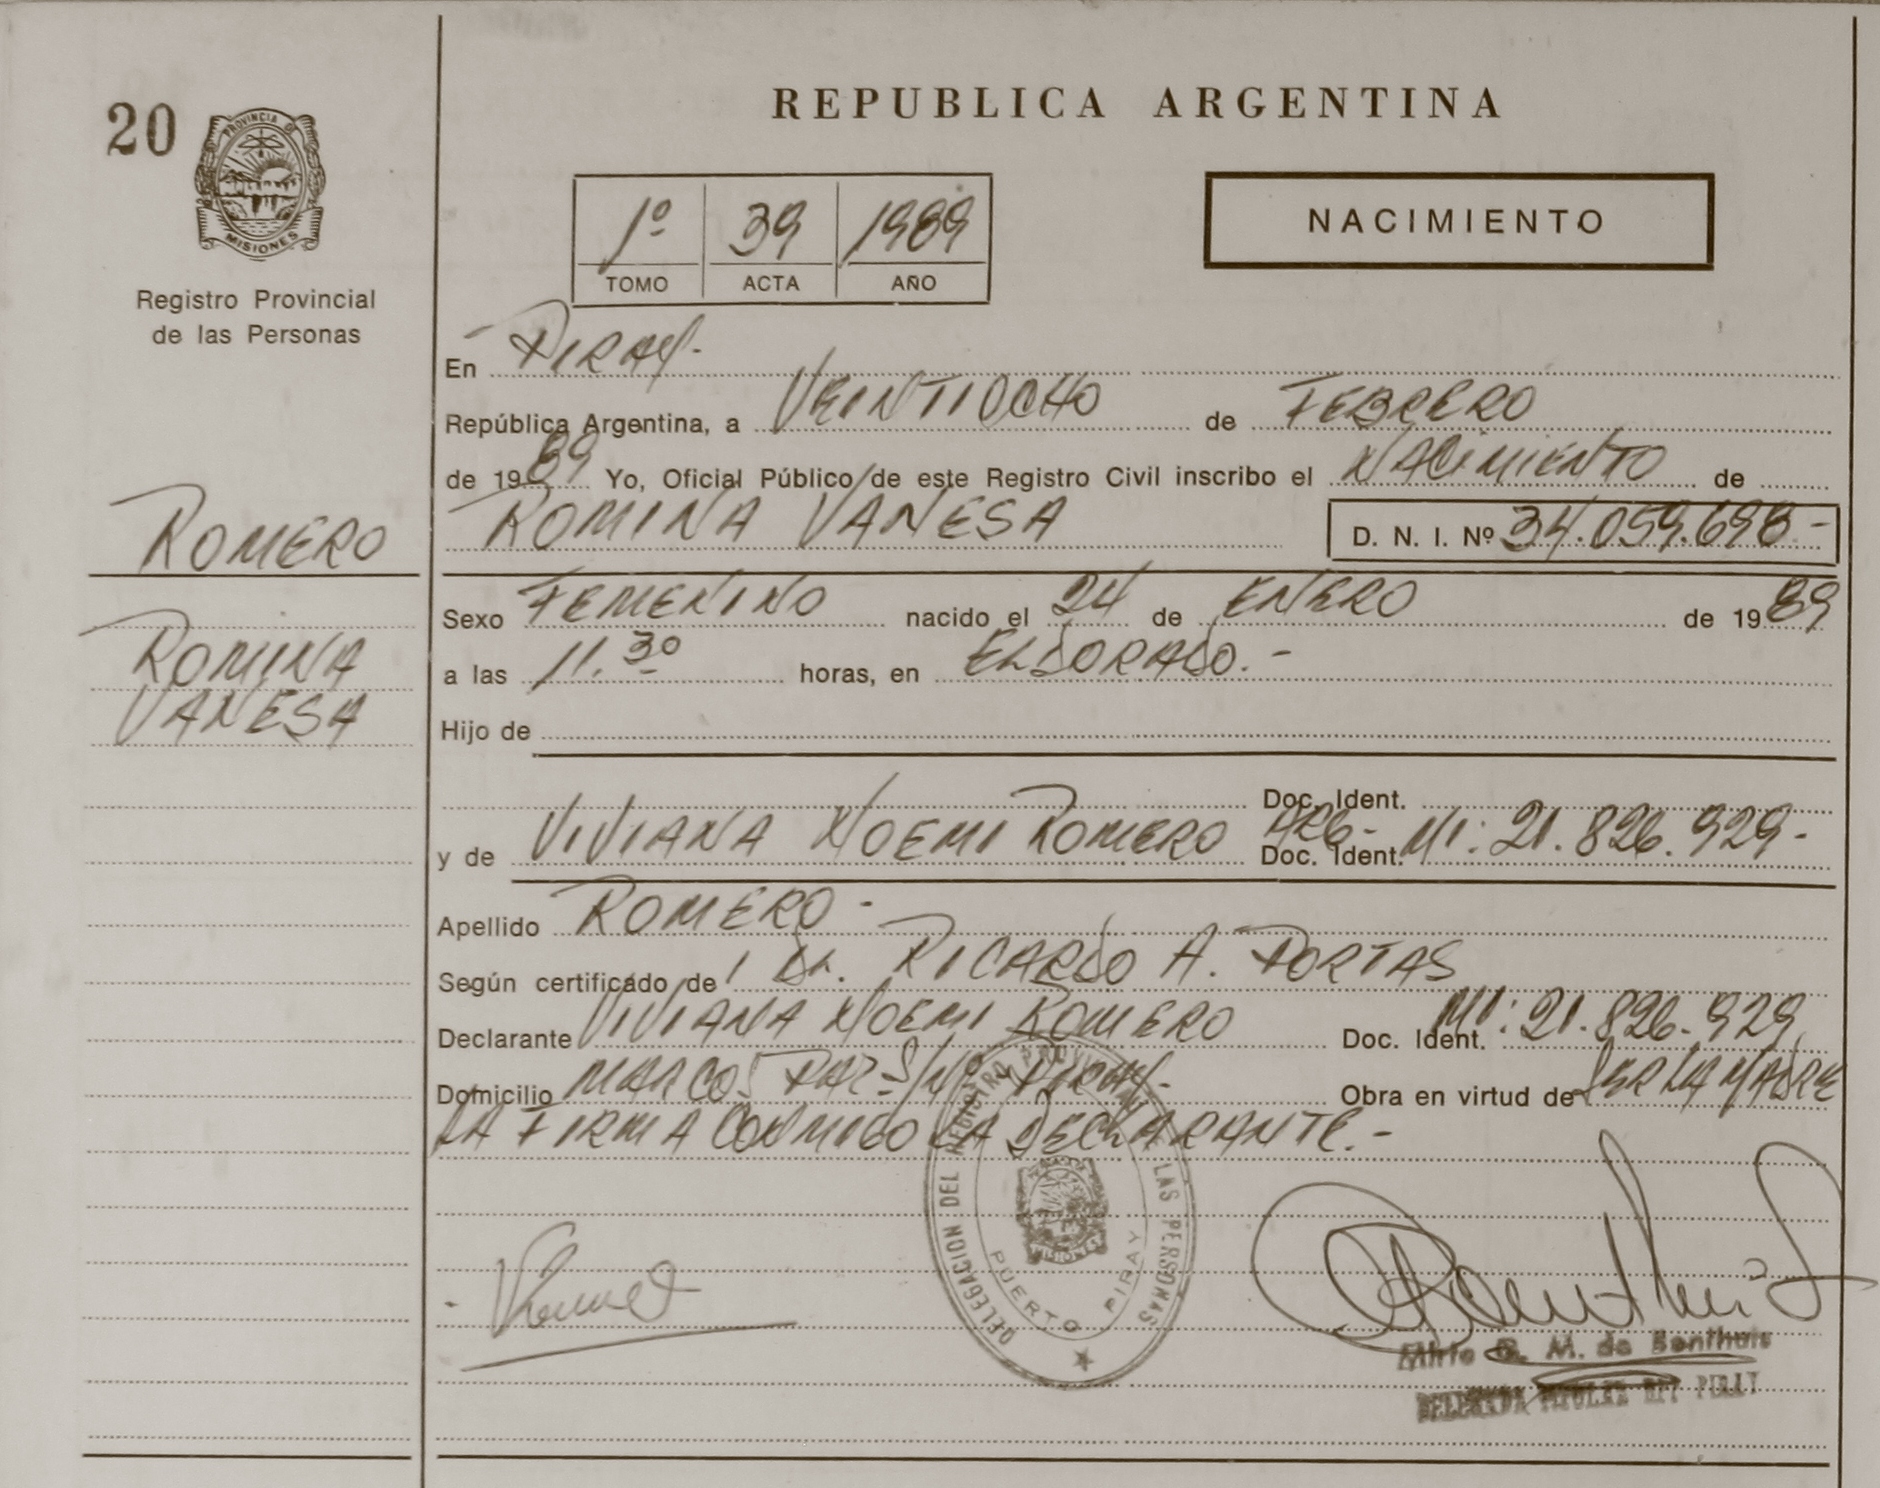 20
PROVINCIA DE
MISIONES
Registro Provincial
de las Personas
REPUBLICA ARGENTINA
1º 39 1989
TOMO ACTA AÑO
NACIMIENTO
En PIRAY-
República Argentina, a VEINTIOCHO de FEBRERO
de 1989 Yo, Oficial Público de este Registro Civil inscribo el NACIMIENTO de
ROMERO
ROMINA VANESA D. N. I. Nº 34.059.698-
ROMINA
VANESA
Sexo FEMENINO nacido el 24 de ENERO de 1989
a las 11.30 horas, en ELDORADO.-
Hijo de
Doc. Ident.
y de VIVIANA NOEMI ROMERO ARG- Doc. Ident. MI: 21.826.929-
Apellido ROMERO-
Según certificado de Dr. RICARDO A. PORTAS
Declarante VIVIANA NOEMI ROMERO Doc. Ident. MI: 21.826.929,
Domicilio MARCOS PAZ-S/Nº PIRAY- Obra en virtud de SER LA MADRE
LA FIRMA CONMIGO LA DECLARANTE.-
DELEGACION DEL REGISTRO PROVINCIAL DE LAS PERSONAS
MISIONES
PUERTO PIRAY
M. de Benthuis